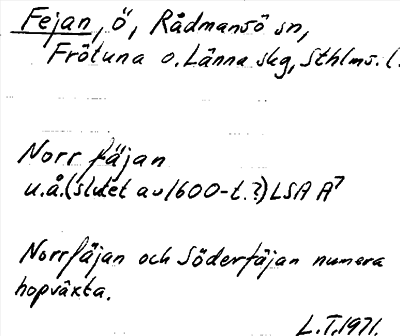 Fejan, ö, Rådmansö sn,
Frötuna o. Länna skg, Sthlms. l.
Norrfäjan
u.å. (slutet av 1600-t.?) LSA A7
Norrfäjan och Söderfäjan numera
hopväxta.
L.T. 1971.